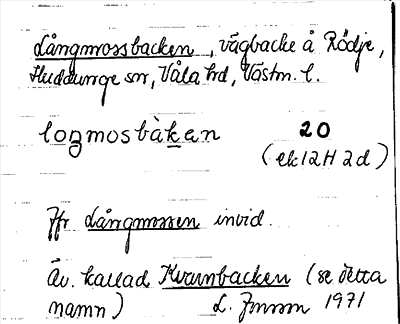 Långmossbacken, vägbacke å Rödje,
Huddunge sn, Våla hd, Västm. l.
loŋmosbàkan 20
(ek 12H 2d)
Jfr Långmossen invid.
Äv. kallad Kvarnbacken (se detta
namn) L. Jonsson 1971